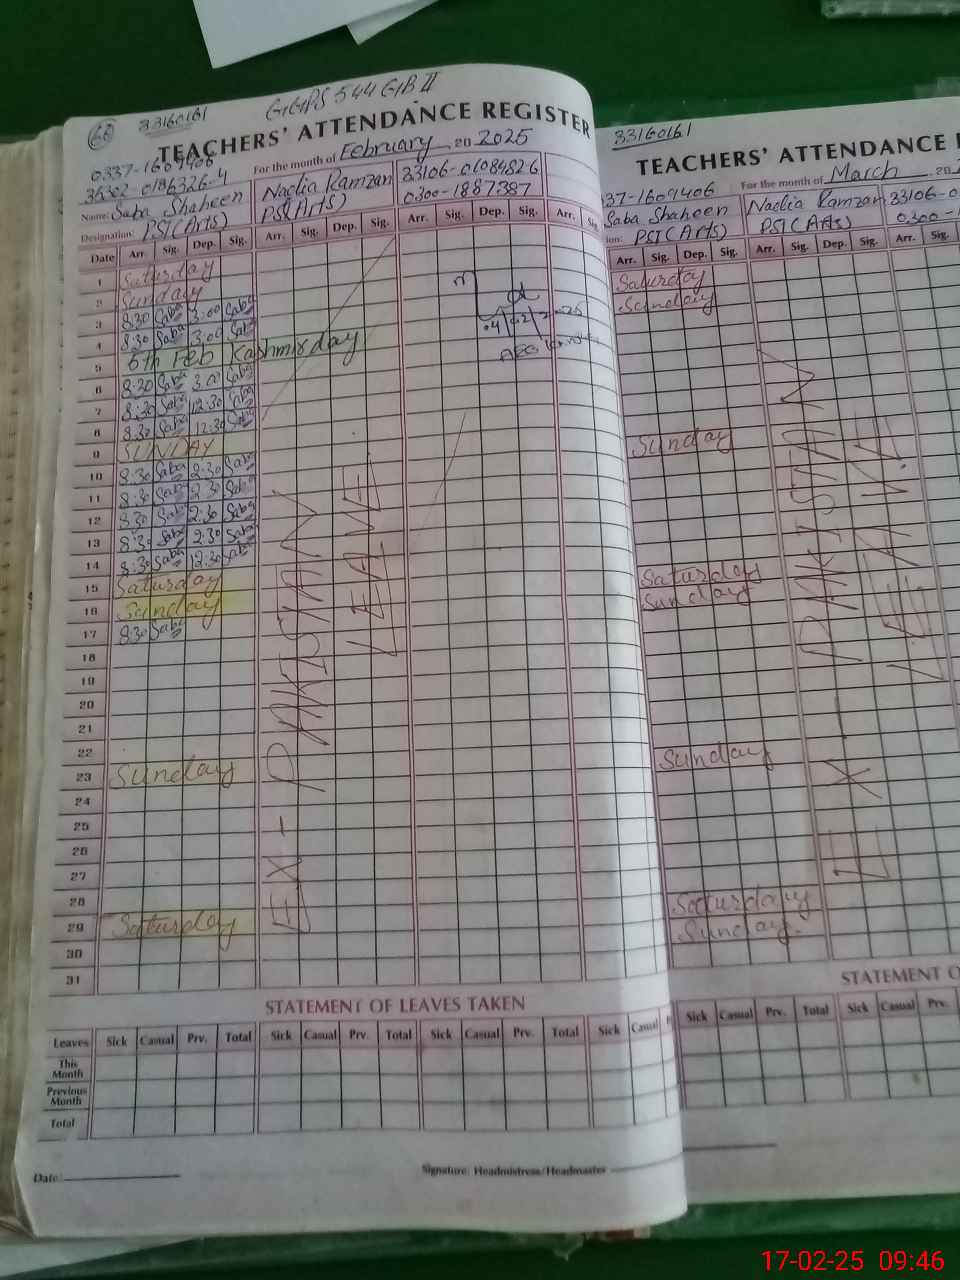 66 33160161 GGPS 544 GB II
TEACHERS' ATTENDANCE REGISTER
For the month of February 2025
0337-1609406
36302-0186326-4
Name: Saba Shaheen Nadia Ramzan 33106-0108482-6
Designation: PST(Arts) PST(Arts) 0300-1887387
Date Arr. Sig. Dep. Sig. Arr. Sig. Dep. Sig. Arr. Sig. Dep. Sig. Arr.
1 Saturday
2 Sunday
3 8:30 Saba 3:00 Saba
4 8:30 Saba 3:00 Saba
5 5th Feb Kashmir day
6 8:30 Saba 3:00 Saba
7 8:30 Saba 12:30 Saba
8 8:30 Saba 12:30 Saba
9 SUNDAY
10 8:30 Saba 2:30 Saba
11 8:30 Saba 2:30 Saba
12 8:30 Saba 2:30 Saba
13 8:30 Saba 2:30 Saba
14 8:30 Saba 12:30 Saba
15 Saturday
16 Sunday
17 8:30 Saba
18
19
20
21
22
23 Sunday
24
25
26
27
28
29 Saturday
30
31
EX-PAKISTAN
LEAVE
STATEMENT OF LEAVES TAKEN
Leaves Sick Casual Prv. Total Sick Casual Prv. Total Sick Casual Prv. Total Sick Casual
This Month
Previous Month
Total
Date: Signature: Headmistress/Headmaster
33160161
TEACHERS' ATTENDANCE
For the month of March 20
37-1609406
Saba Shaheen Nadia Ramzan 33106-0
PST(Arts) PST(Arts) 0300-1
Arr. Sig. Dep. Sig. Arr. Sig. Dep. Sig. Arr. Sig.
Saturday
Sunday
Sunday
Saturday
Sunday
Sunday
Saturday
Sunday
EX-PAKISTAN
LEAVE
STATEMENT O
Sick Casual Prv. Total Sick Casual Prv.
17-02-25 09:46